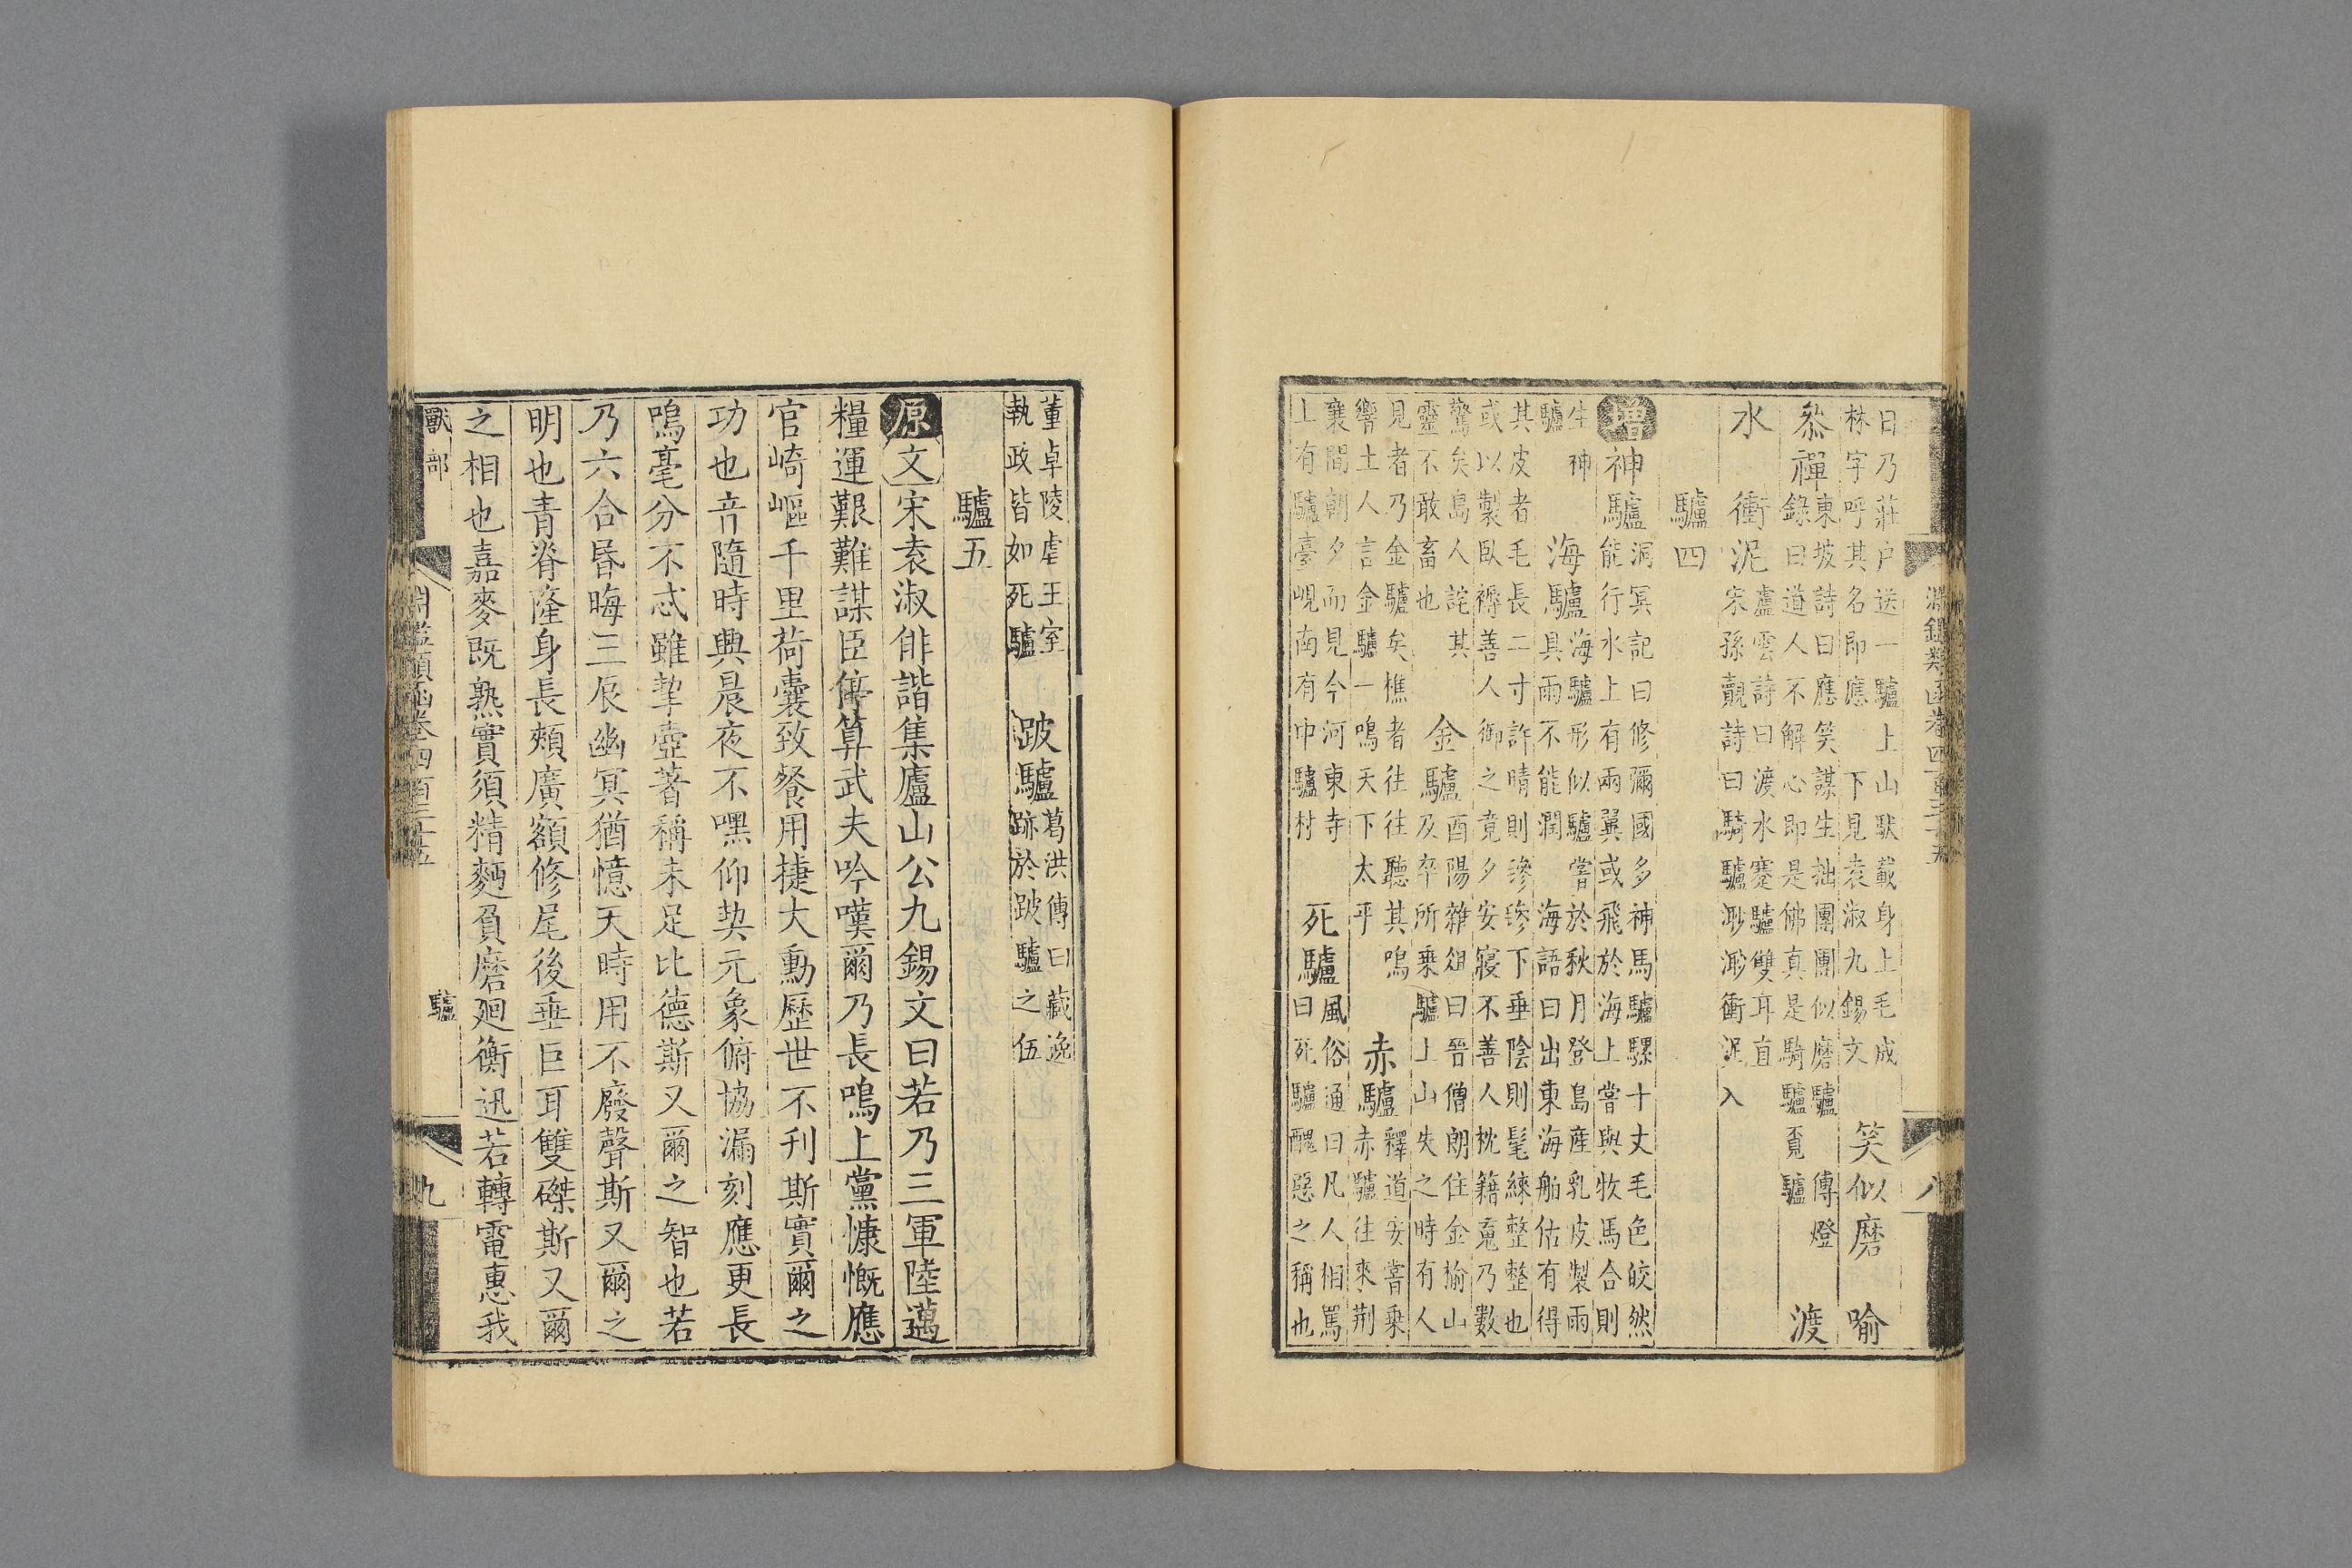 淵鑑類函卷四百三十五 八
日乃莊户送一驢上山馱載身上毛成
林字呼其名即應 下見袁淑九錫文 笑似磨 喻
叅禪 東坡詩曰應笑謀生拙團團似磨驢 傳燈
錄曰道人不解心即是佛真是騎驢覓驢 渡
水 衝泥 盧雲詩曰渡水蹇驢雙耳直
宋孫覿詩曰騎驢渺渺衝泥入
驢四
增 神驢 洞冥記曰修彌國多神馬驢騾十丈毛色皎然
能行水上有兩翼或飛於海上嘗與牧馬合則
生神
驢 海驢 海驢形似驢嘗於秋月登島産乳皮製雨
具雨不能潤 海語曰出東海舶估有得
其皮者毛長二寸許晴則毿毿下垂陰則髦練整整也
或以製臥褥善人御之竟夕安寢不善人枕籍䰟乃數
驚矣島人詫其
靈不敢畜也 金驢 酉陽雜俎曰晉僧朗住金榆山
及卒所乗驢上山失之時有人
見者乃金驢矣樵者往往聽其鳴
響土人言金驢一鳴天下太平 赤驢 釋道安嘗乗
赤驢往來荆
襄間朝夕而見今河東寺
上有驢臺峴南有中驢村 死驢 風俗通曰凡人相罵
曰死驢醜惡之稱也
董卓陵虐王室
執政皆如死驢 跛驢 葛洪傳曰藏逸
跡於跛驢之伍
驢五
原 文 宋袁淑俳諧集廬山公九錫文曰若乃三軍陸邁
糧運艱難謀臣停算武夫吟嘆爾乃長鳴上黨慷慨應
官崎嶇千里荷囊致餐用捷大勳歷世不刋斯實爾之
功也音隨時興晨夜不嘿仰契元象俯協漏刻應更長
鳴毫分不忒雖挈壺著稱未足比德斯又爾之智也若
乃六合昏晦三辰幽冥猶憶天時用不廢聲斯又爾之
明也青脊隆身長頰廣額修尾後垂巨耳雙磔斯又爾
之相也嘉麥既熟實須精麪負磨廻衡迅若轉電惠我
獸部 淵鑑類函卷四百三十五 驢 九